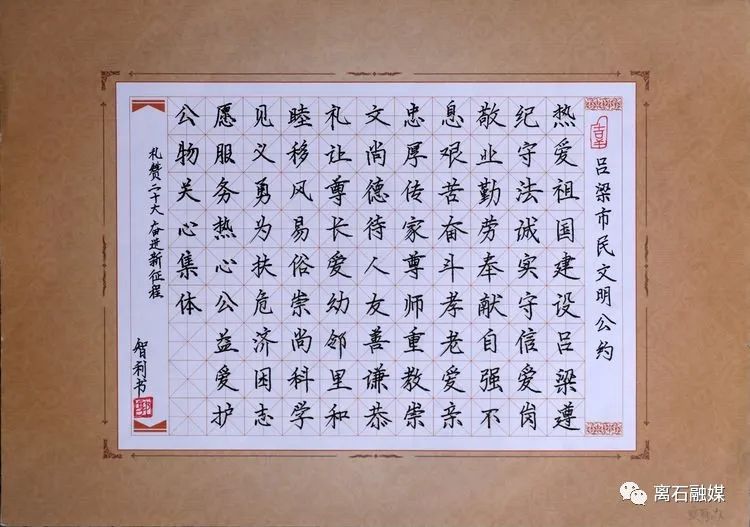 吕梁市民文明公约
热爱祖国建设吕梁遵
纪守法诚实守信爱岗
敬业勤劳奉献自强不
息艰苦奋斗孝老爱亲
忠厚传家尊师重教崇
文尚德待人友善谦恭
礼让尊长爱幼邻里和
睦移风易俗崇尚科学
见义勇为扶危济困志
愿服务热心公益爱护
公物关心集体
礼赞二十大 奋进新征程
智利书
离石融媒